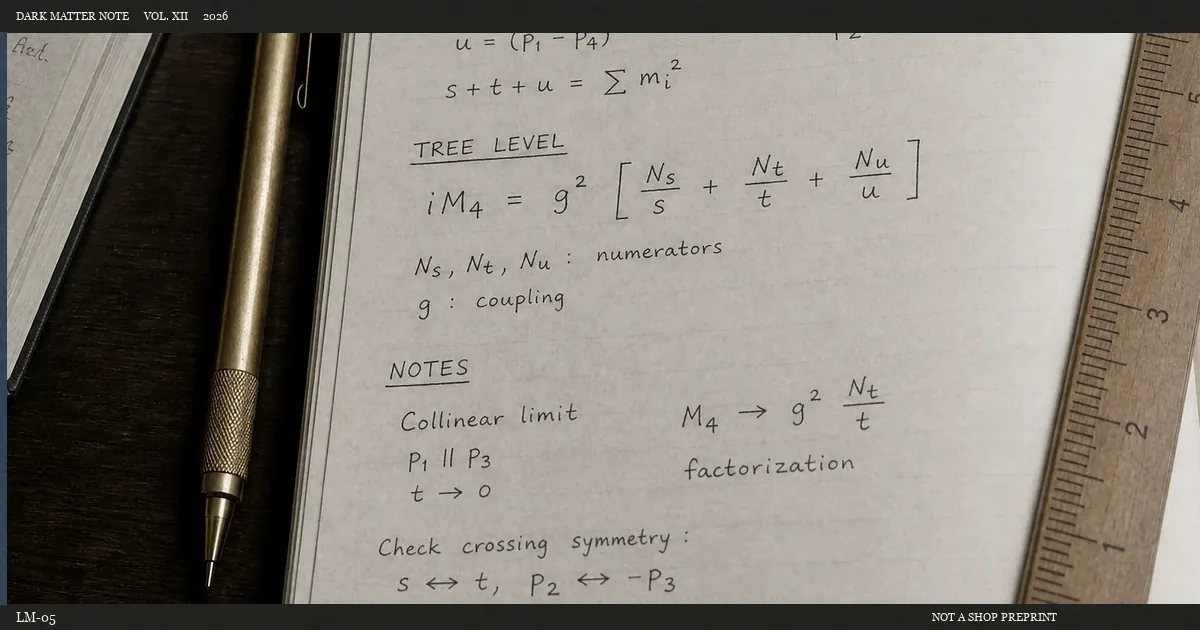 DARK MATTER NOTE VOL. XII 2026
u = (p₁ − p₄)
s + t + u = ∑ mᵢ²
TREE LEVEL
iM₄ = g² [ Nₛ/s + Nₜ/t + Nᵤ/u ]
Nₛ, Nₜ, Nᵤ : numerators
g : coupling
NOTES
Collinear limit
p₁ || p₃
t → 0
M₄ → g² Nₜ/t
factorization
Check crossing symmetry :
s ↔ t, p₂ ↔ −p₃
5
4
3
2
1
LM-05
NOT A SHOP PREPRINT